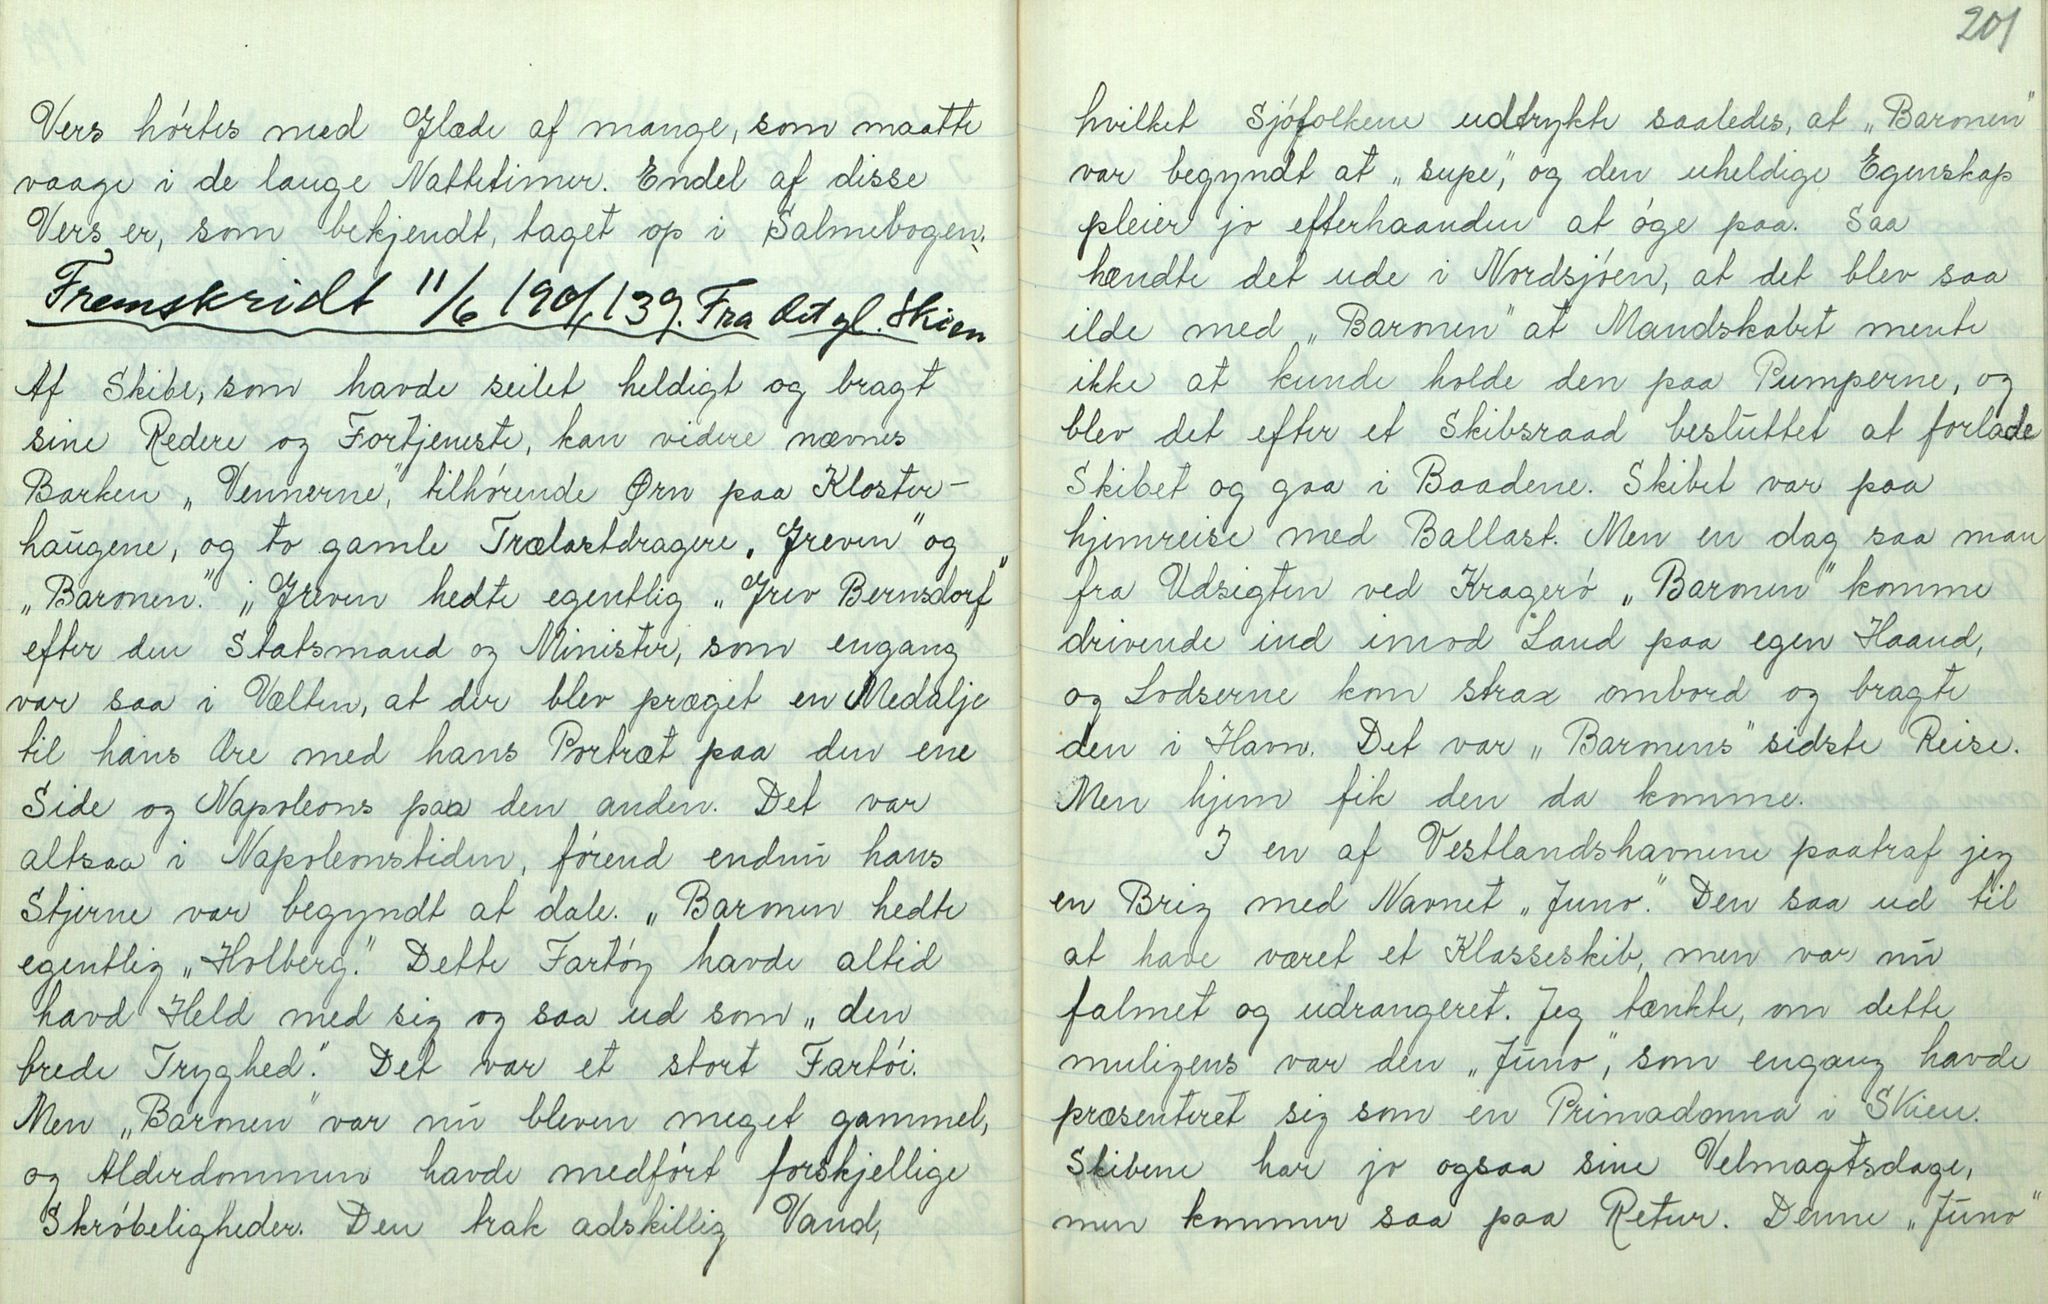 Vers hørtes med Glæde af mange, som maatte
vaage i de lange Nattetimer. Endel af disse
Vers er, som bekjendt, taget op i Salmebogen.
Fremskridt 11/6 1904, 139. Fra det gl. Skien
Af Skibe, som havde seilet heldigt og bragt
sine Redere og Fortjeneste, kan videre nævnes
Barken „Vennerne", tilhørende Ørn paa Kloster-
haugene, og to gamle Trælastdragere, „Greven" og
„Baronen." „Greven hedte egentlig „Grev Bernsdorf"
efter den Statsmand og Minister, som engang
var saa i Vælten, at der blev præget en Medalje
til hans Ære med hans Portræt paa den ene
Side og Napoleons paa den anden. Det var
altsaa i Napoleonstiden, førend endnu hans
Stjerne var begyndt at dale. „Baronen hedte
egentlig „Holberg." Dette Fartøy havde altid
havd Held med sig og saa ud som „den
brede Tryghed." Det var et stort Fartøi.
Men „Baronen" var nu bleven meget gammel,
og Alderdommen havde medført forskjellige
Skrøbeligheder. Den trak adskillig Vand,
201
hvilket Sjøfolkene udtrykte saaledes, at „Baronen"
var begyndt at „supe", og den uheldige Egenskap
pleier jo efterhaanden at øge paa. Saa
hændte det ude i Nordsjøen, at det blev saa
ilde med „Baronen" at Mandskabet mente
ikke at kunde holde den paa Pumperne, og
blev det efter et Skibsraad besluttet at forlade
Skibet og gaa i Baadene. Skibet var paa
hjemreise med Ballast. Men en dag saa man
fra Udsigten ved Kragerø „Baronen" komme
drivende ind imod Land paa egen Haand,
og Lodserne kom strax ombord og bragte
den i Havn. Det var „Baronens" sidste Reise.
Men hjem fik den da komme.
I en af Vestlandshavnene paatraf jeg
en Brig med Navnet „Juno." Den saa ud til
at have været et Klasseskib, men var nu
falmet og udrangeret. Jeg tænkte, om dette
muligens var den „Juno", som engang havde
præsenteret sig som en Primadonna i Skien.
Skibene har jo ogsaa sine Velmagtsdage,
men kommer saa paa Retur. Denne „Juno"